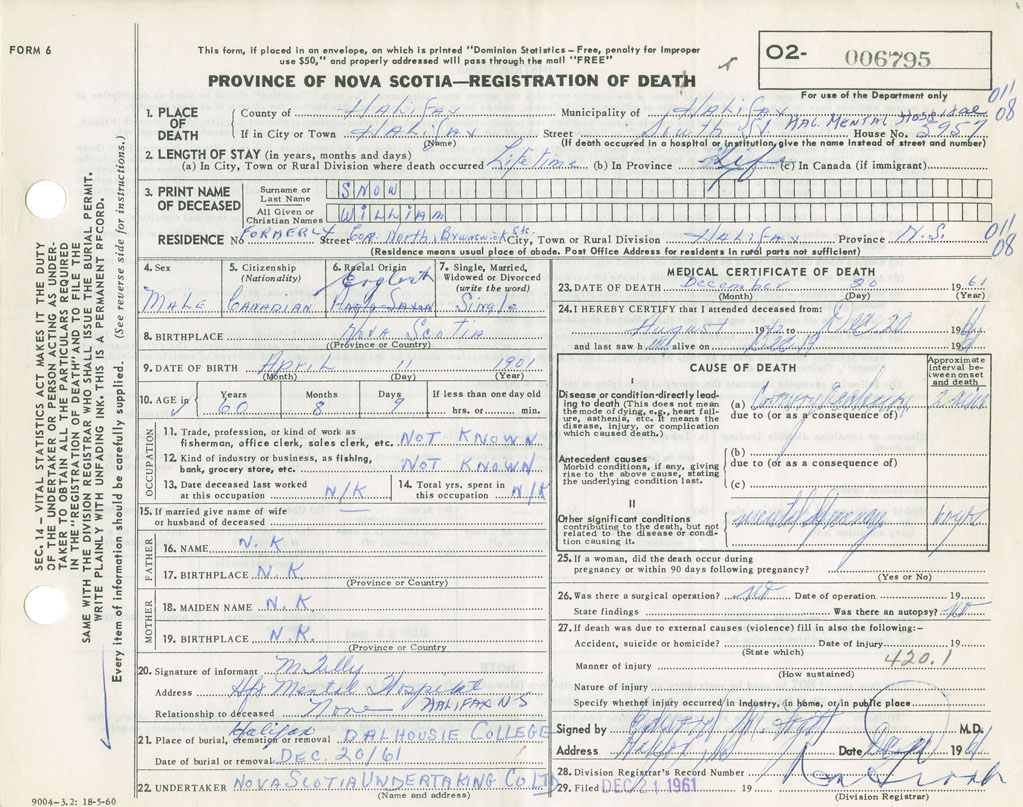 FORM 6
This form, if placed in an envelope, on which is printed "Dominion Statistics – Free, penalty for improper
use $50," and properly addressed will pass through the mail "FREE"
PROVINCE OF NOVA SCOTIA—REGISTRATION OF DEATH
O2- 006795
For use of the Department only
1. PLACE OF DEATH
County of Halifax Municipality of Halifax
011
08
HAL. MENTAL HOSPITAL
If in City or Town Halifax Street South St. House No. 5957
(Name) (If death occurred in a hospital or institution, give the name instead of street and number)
2. LENGTH OF STAY (in years, months and days)
(a) In City, Town or Rural Division where death occurred Lifetime (b) In Province Life (c) In Canada (if immigrant)
3. PRINT NAME OF DECEASED
Surname or Last Name SNOW
All Given or Christian Names WILLIAM
RESIDENCE No. FORMERLY Street Cor. North, Brunswick Sts. City, Town or Rural Division Halifax Province N.S.
011
08
(Residence means usual place of abode. Post Office Address for residents in rural parts not sufficient)
4. Sex
MALE
5. Citizenship
(Nationality)
CANADIAN
6. Racial Origin
English
Anglo Saxon
7. Single, Married,
Widowed or Divorced
(write the word)
Single
8. BIRTHPLACE Nova Scotia
(Province or Country)
9. DATE OF BIRTH April 11 1901
(Month) (Day) (Year)
10. AGE in
Years 60
Months 8
Days 9
If less than one day old
hrs. or min.
OCCUPATION
11. Trade, profession, or kind of work as
fisherman, office clerk, sales clerk, etc. NOT KNOWN
12. Kind of industry or business, as fishing,
bank, grocery store, etc. NOT KNOWN
13. Date deceased last worked
at this occupation N/K
14. Total yrs. spent in
this occupation N/K
15. If married give name of wife
or husband of deceased
FATHER
16. NAME N.K
17. BIRTHPLACE N.K
(Province or Country)
MOTHER
18. MAIDEN NAME N.K
19. BIRTHPLACE N.K.
(Province or Country)
20. Signature of informant
Address Hfx Mental Hospital
HALIFAX N-S
Relationship to deceased None
21. Place of burial, cremation or removal Halifax DALHOUSIE COLLEGE
Date of burial or removal DEC. 20/61
22. UNDERTAKER NOVA SCOTIA UNDERTAKING CO LTD
(Name and address)
9004–3.2: 18-5-60
MEDICAL CERTIFICATE OF DEATH
23. DATE OF DEATH December 20 1961
(Month) (Day) (Year)
24. I HEREBY CERTIFY that I attended deceased from:
August 1942 to Dec. 20 1961
and last saw him alive on Dec. 19 1961
CAUSE OF DEATH
Approximate
interval be-
tween onset
and death
I
Disease or condition directly lead-
ing to death (This does not mean
the mode of dying, e.g., heart fail-
ure, asthenia, etc. It means the
disease, injury, or complication
which caused death.)
(a)
due to (or as a consequence of)
Antecedent causes
Morbid conditions, if any, giving
rise to the above cause, stating
the underlying condition last.
(b)
due to (or as a consequence of)
(c)
II
Other significant conditions
contributing to the death, but not
related to the disease or condi-
tion causing it.
mental deficiency 60 yrs
25. If a woman, did the death occur during
pregnancy or within 90 days following pregnancy?
(Yes or No)
26. Was there a surgical operation? NO Date of operation 19
State findings Was there an autopsy? NO
27. If death was due to external causes (violence) fill in also the following:–
Accident, suicide or homicide? Date of injury 19
(State which)
420.1
Manner of injury
(How sustained)
Nature of injury
Specify whether injury occurred in industry, in home, or in public place
Signed by M.D.
Address Date 1961
28. Division Registrar's Record Number
29. Filed DEC 21 1961 19
(Division Registrar)
SEC. 14 – VITAL STATISTICS ACT MAKES IT THE DUTY
OF THE UNDERTAKER OR PERSON ACTING AS UNDER-
TAKER TO OBTAIN ALL THE PARTICULARS REQUIRED
IN THE "REGISTRATION OF DEATH" AND TO FILE THE
SAME WITH THE DIVISION REGISTRAR WHO SHALL ISSUE THE BURIAL PERMIT.
WRITE PLAINLY WITH UNFADING INK. THIS IS A PERMANENT RECORD.
Every item of information should be carefully supplied. (See reverse side for instructions.)